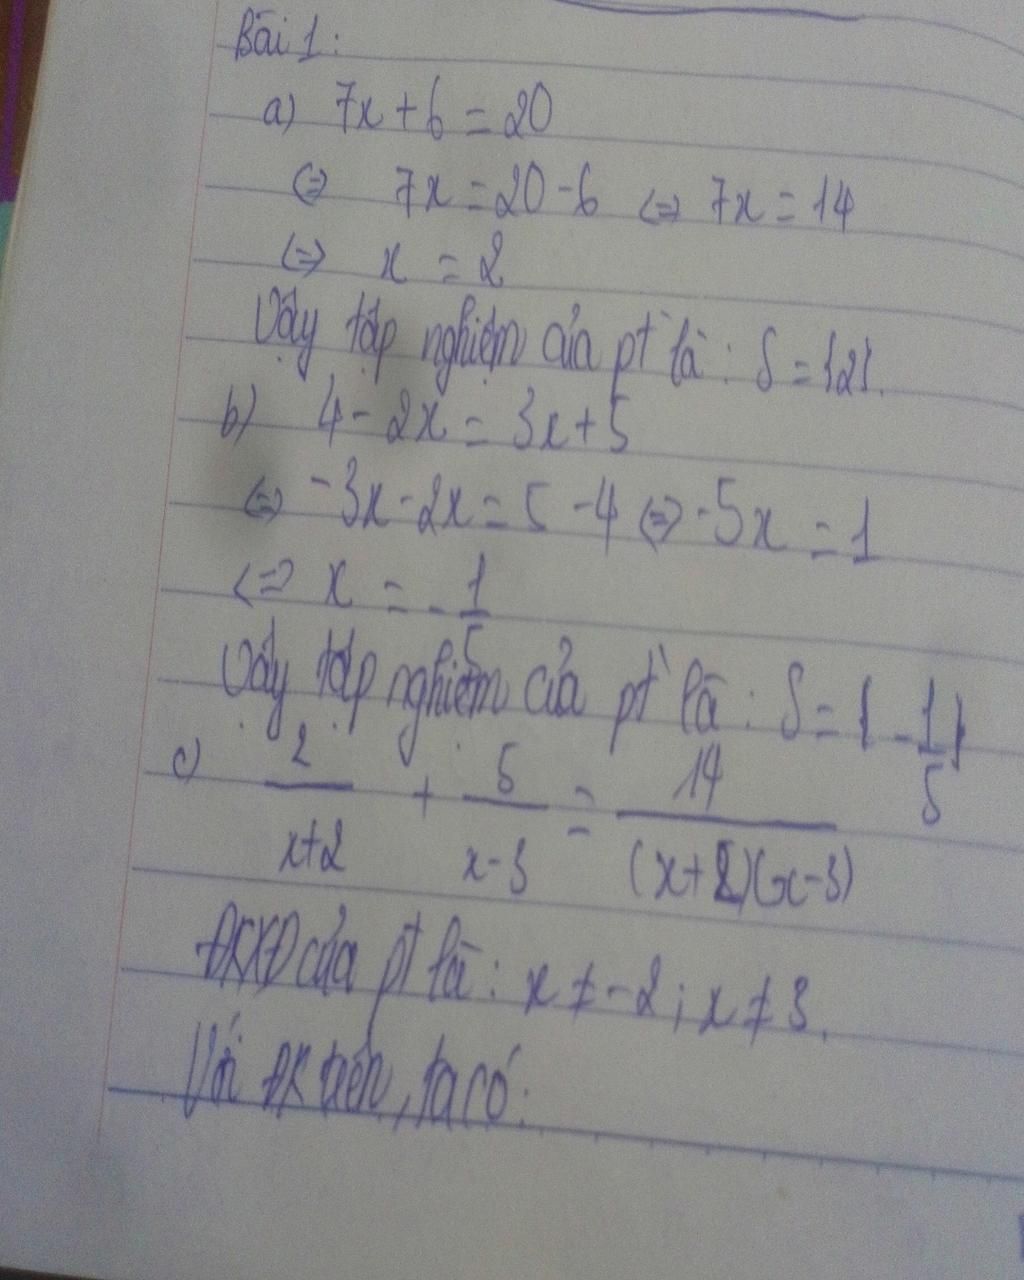 Bài 1:
a) 7x + 6 = 20
<=> 7x = 20 - 6 <=> 7x = 14
<=> x = 2
Vậy tập nghiệm của pt là: S = {2}.
b) 4 - 2x = 3x + 5
<=> -3x - 2x = 5 - 4 <=> -5x = 1
<=> x = -1/5
Vậy tập nghiệm của pt là: S = {-1/5}
c) 2/(x+2) + 5/(x-3) = 14/((x+2)(x-3))
ĐKXĐ của pt là: x ≠ -2; x ≠ 3.
Với ĐK trên, ta có: